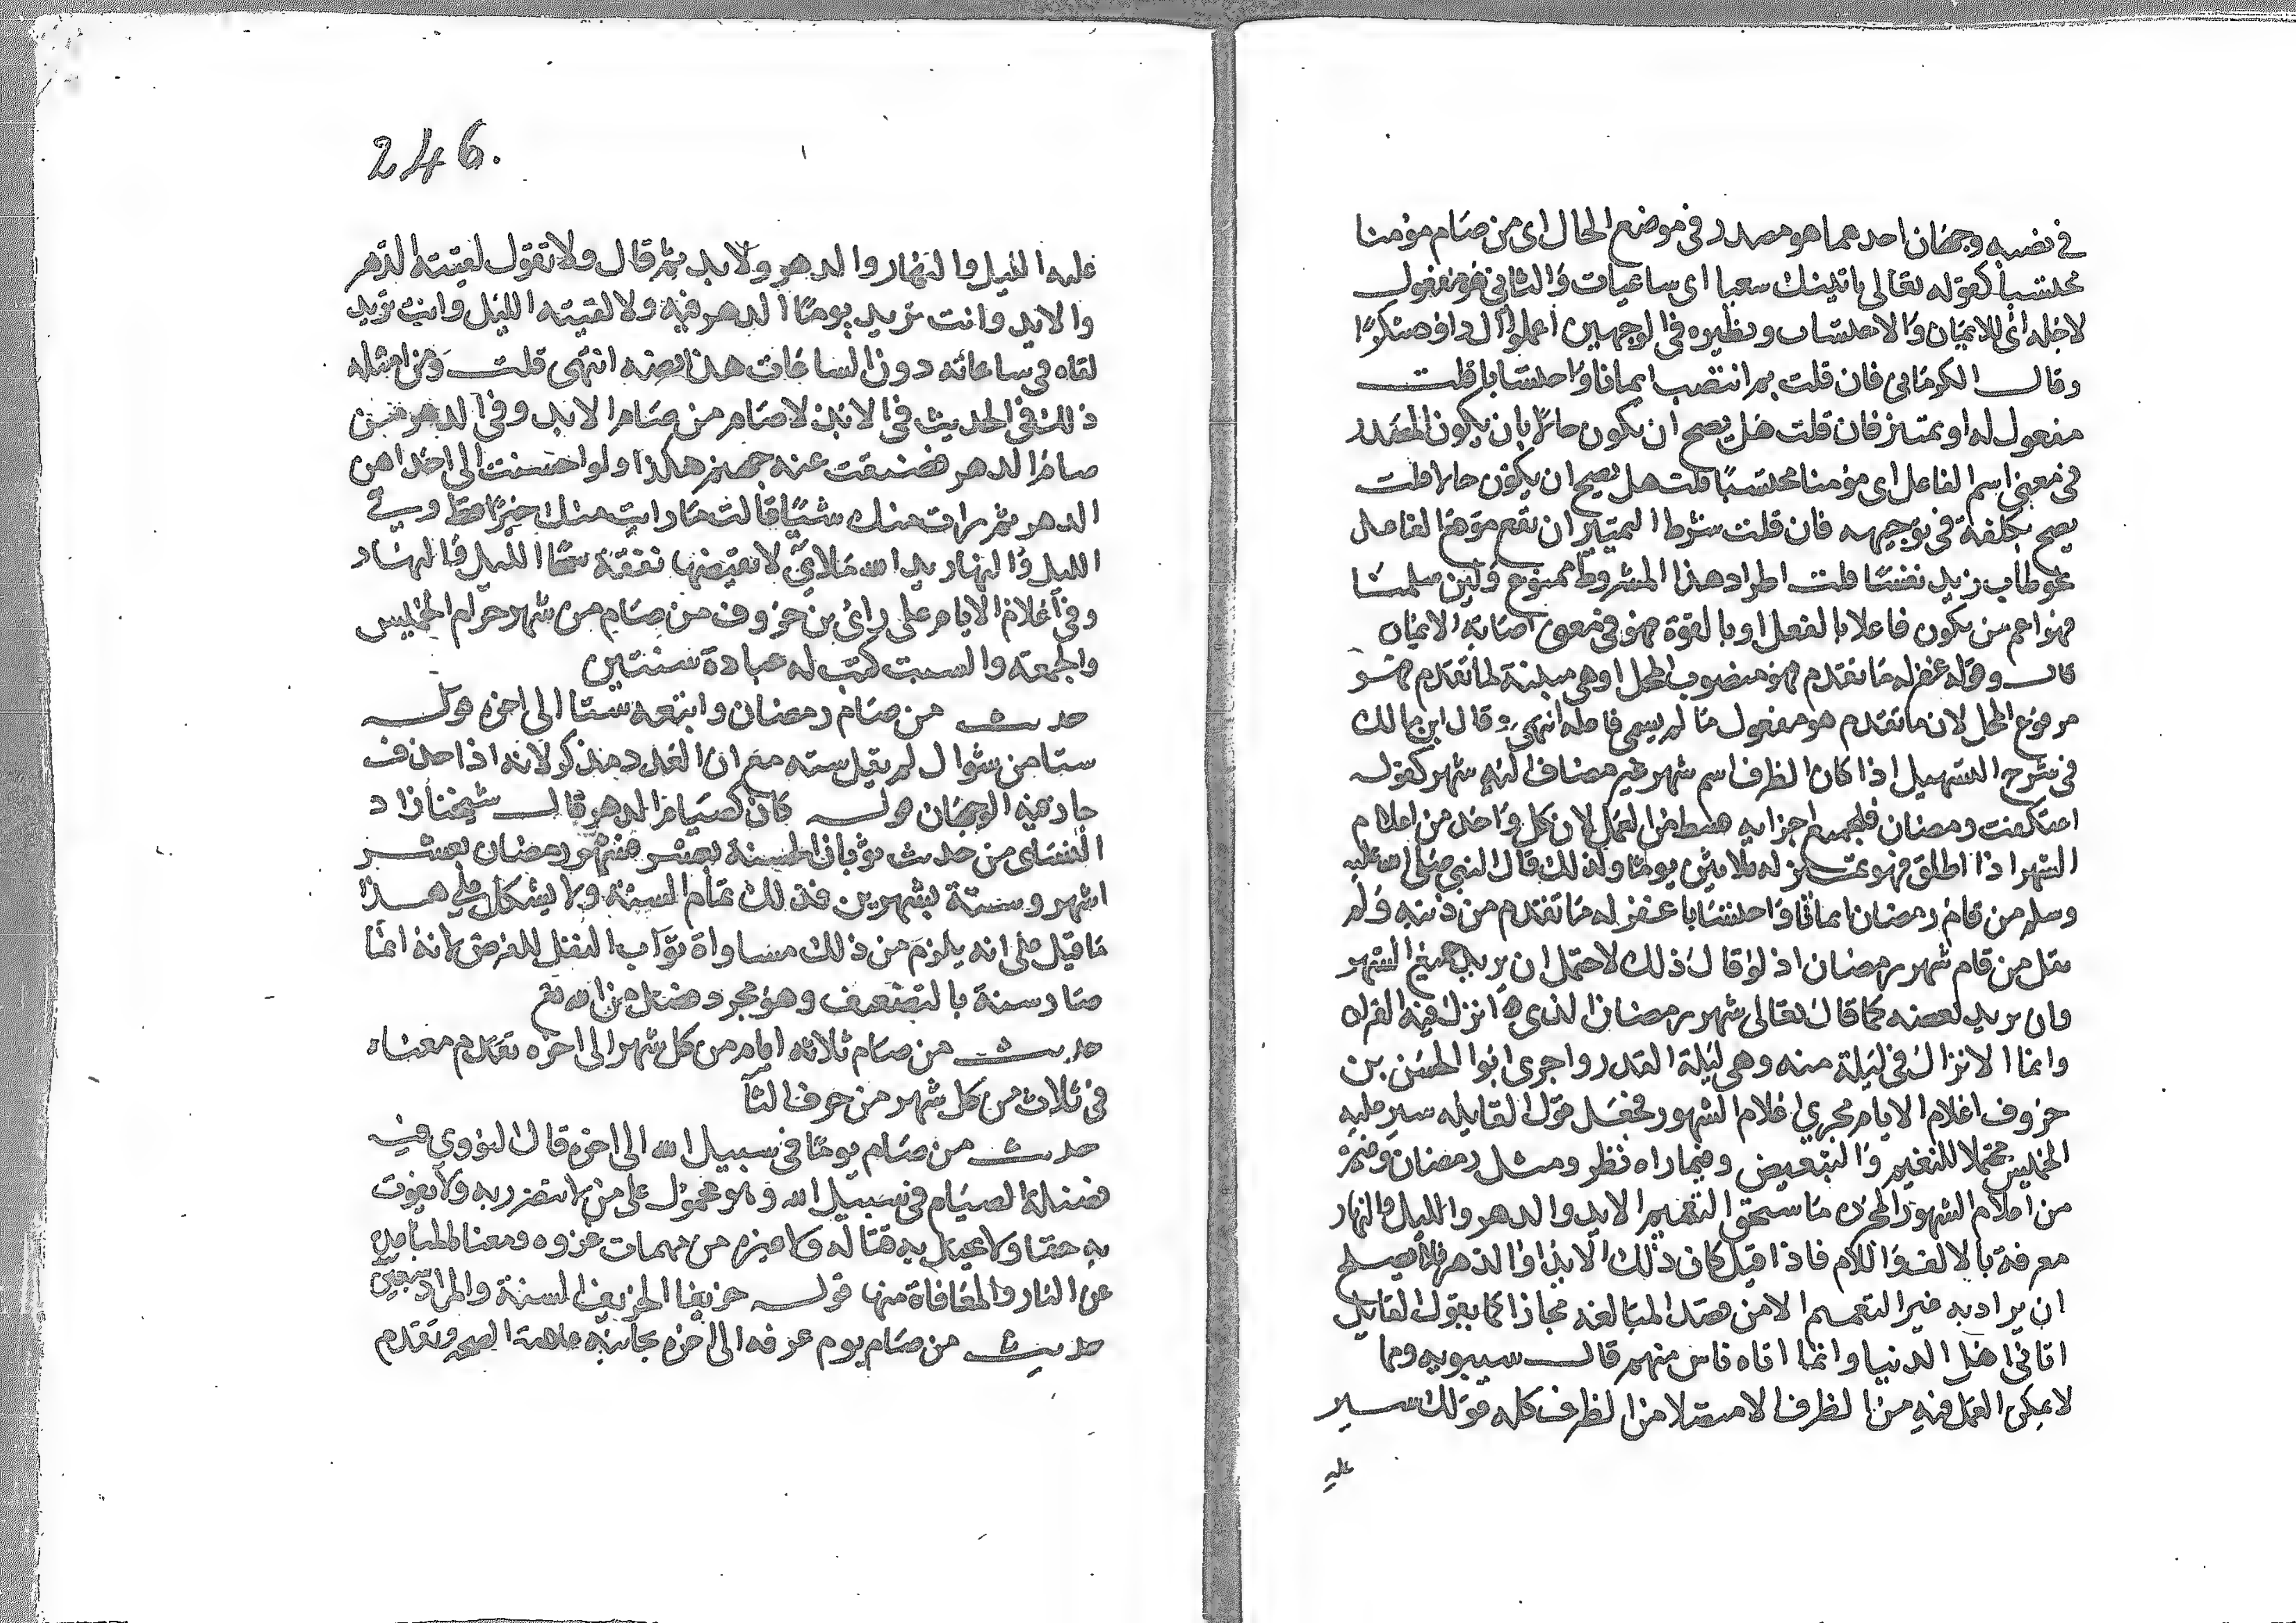 في نصبه وجهان احدهما هو مصدر في موضع الحال اى من صام مؤمنا
محتسبا كقوله تعالى ياتينك سعيا اى ساعيات والثاني هو مفعول
لاجله اى للايمان والاحتساب ونظيره في الوجهين اعملوا آل داود شكرا
وقال الكرماني فان قلت بم انتصب ايمانا واحتسابا قلت
مفعول له او تمييز فان قلت هل يصح ان يكون حالا بان يكون المصدر
في معنى اسم الفاعل اى مؤمنا محتسبا قلت هل يصح ان يكون حالا قلت
يصح بكلفة في توجيهه فان قلت شرط التمييز ان يقع موقع الفاعل
نحو طاب زيد نفسا قلت اطراد هذا الشروط ممنوع ولين سلمنا
فهو اعم من يكون فاعلا بالفعل او بالقوة فهو في معنى اصابة الايمان
قال وقوله غفر له ما تقدم فهو منصوب المحل او هي مبينة لما تقدم فهو
مرفوع المحل لان ما تقدم هو مفعول ما لم يسمى فاعله انتهى وقال ابن مالك
في شرح التسهيل اذا كان الظرف اسم شهر غير مضاف اليه شهر كقولك
اعتكفت رمضان فلجميع اجزايه قسط من العمل لان كل واحد من اعلام
الشهر اذا اطلق فهو بمنزلة ثلاثين يوما ولذلك قال النبي صلى الله عليه
وسلم من قام رمضان ايمانا واحتسابا غفر له ما تقدم من ذنبه ولم
يقل من قام شهر رمضان اذ لو قال ذلك لاحتمل ان يريد جميع الشهر
وان يريد بعضه كما قال تعالى شهر رمضان الذى انزل فيه القران
وانما الانزال في ليلة منه وهي ليلة القدر واجرى ابو الحسن بن
خروف اعلام الايام مجرى اعلام الشهور فجعل قول القايله سير عليه
الخميس محتملا للتعميم والتبعيض وفيما راه نظر ومثل رمضان وغيره
من اعلام الشهور المجرد ما يستحق التعميم الابد والدهر والليل والنهار
معرفة بالالف واللام فاذا قيل كان ذلك الابد او الدهر فلا يصلح
ان يراد به غير التعميم الا من قصد المبالغه مجازا كما يقول القايل
اتاني اهل الدنيا وانما اتاه ناس منهم قال سيبويه ومما
لا يمكن العمل فيه من الظرف الا متصلا من الظرف كله قولك سير
عليه
246.
عليه الليل والنهار والدهر والابد ثم قال ولا تقول لقيته الدهر
والابد وانت تريد يوما الدهر فيه ولا لقيته الليل وانت تريد
لقاه في ساعاته دون الساعات هذا نصه انتهى قلت ومن امثله
ذلك في الحديث في الابد لا صام من صام الابد وفي الدهر من
صام الدهر ضيقت عنه جهنم هكذا ولو احسنت الى احداهن
الدهر ثم رات منك شيئا قالت ما رايت منك خيرا قط وفي
الليل والنهار يد الله ملائ لا يغيضها نفقة سحا الليل والنهار
وفي اعلام الايام على راى بن خروف من صام من شهر حرام الخميس
والجمعه والسبت كتب له عبادة سنتين
حديث من صام رمضان واتبعه ستا الى اخره قوله
ستا من شوال لم يقل سته مع ان العدد مذكر لانه اذا حذف
جاز فيه الوجهان قوله كان كصيام الدهر قال شيخنا زاد
النساى من حديث ثوبان الحسنة بعشر فشهر رمضان بعشر
اشهر وستة بشهرين فذلك تمام السنة ولا يشكل على هذا
ما قيل على انه يلزم من ذلك مساواة ثواب النفل للفرض لانه انما
صار سنة بالتضعيف وهو مجرد فضل من الله تع
حديث من صام ثلاثة ايام من كل شهر الى اخره تقدم معناه
في ثلاث من كل شهر من حرف الثا
حديث من صام يوما في سبيل الله الى اخره قال النووي فيه
فضيلة الصيام في سبيل الله وهو محمول على من لا يتضرر به ولا يفوت
به حقا ولا يختل به قتاله ولا غيره من مهمات غزوه ومعنا المباعده
عن النار والمعافاة منها قوله خريفا الخريف السنة والمراد سبعين
حديث من صام يوم عرفه الى اخره بجانبه علامة الصحه وتقدم